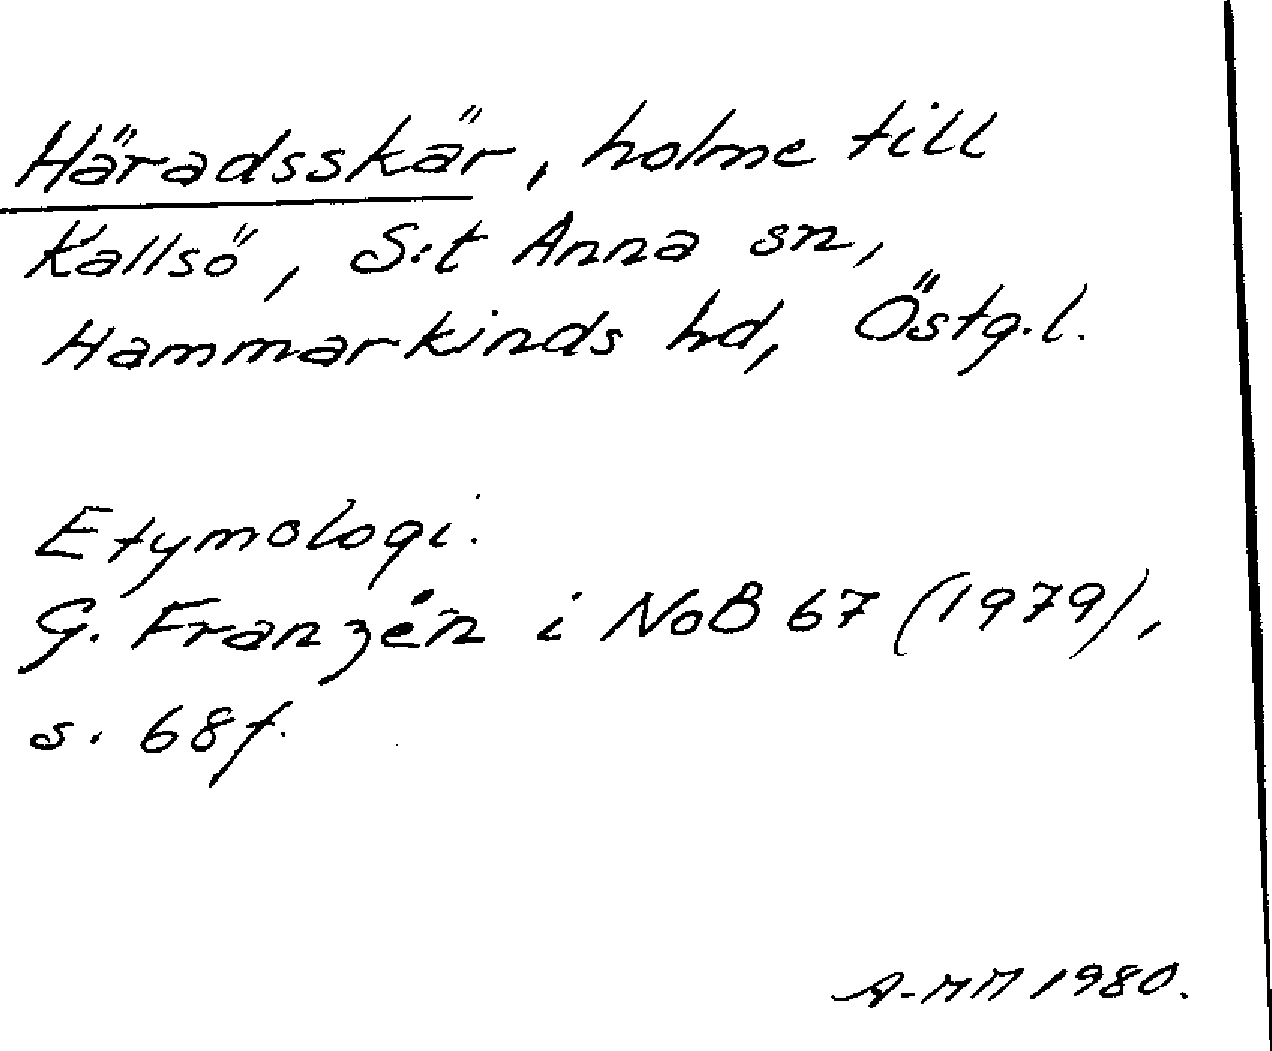 Häradsskär, holme till
Kallsö, S:t Anna sn,
Hammarkinds hd, Östg.l.
Etymologi.
G. Franzén i NoB 67 (1979),
s. 68f.
A-MM 1980.